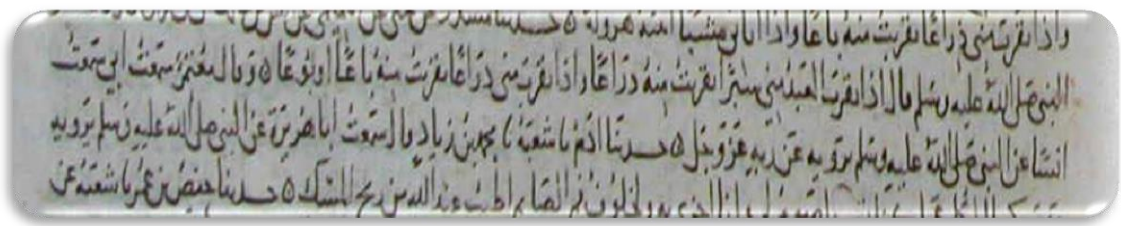 واذا تقرب مني ذراعا تقربت منه باعا واذا اتاني مشيا اتيته هرولة ه حدثنا مسدد عن يحيى عن
النبي صلى الله عليه وسلم قال اذا تقرب العبد مني شبرا تقربت منه ذراعا واذا تقرب مني ذراعا تقربت منه باعا او بوعا ه وقال معتمر سمعت ابي سمعت
انسا عن النبي صلى الله عليه وسلم يرويه عن ربه عز وجل ه حدثنا ادم نا شعبة نا محمد بن زياد قال سمعت ابا هريرة عن النبي صلى الله عليه وسلم يرويه
وانا اجزي به ولخلوف فم الصائم اطيب عند الله من ريح المسك ه حدثنا حفص بن عمر نا شعبة عن